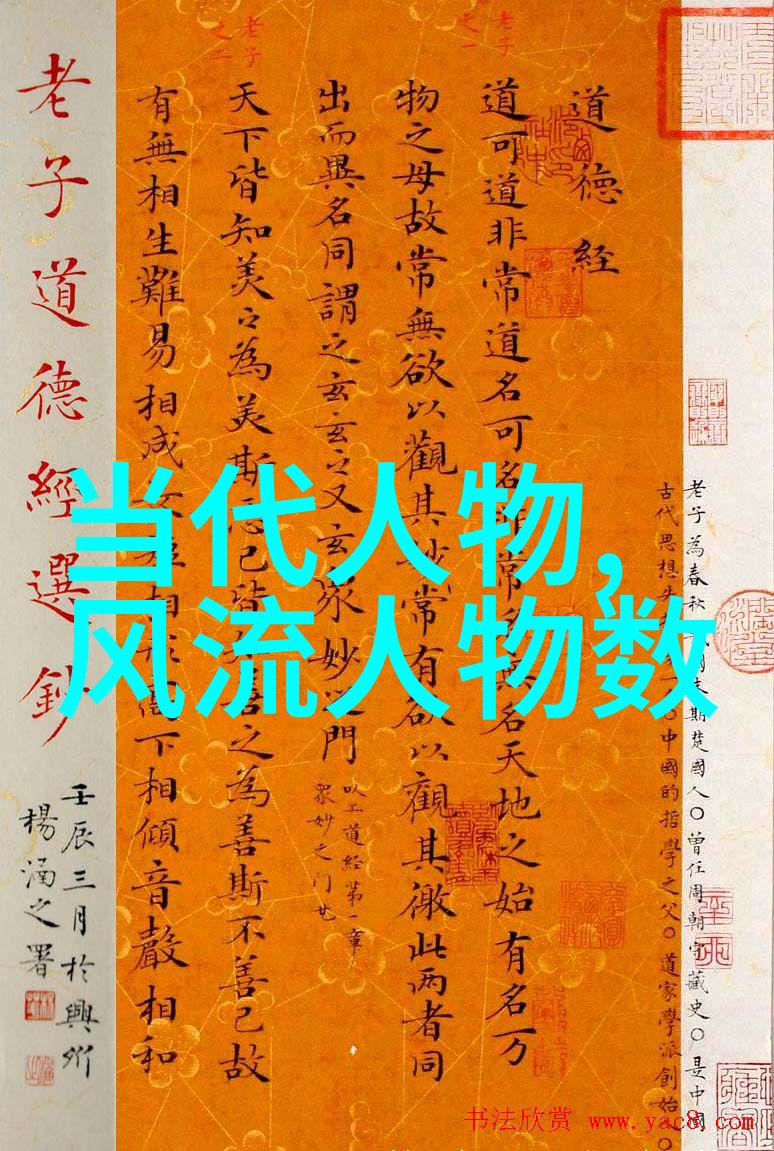 当代人物,
风流人物数
老子道德經選鈔
壬辰三月於興
楊涵之署
老子之一
老子之二
道德經
道可道非常道名可名非常名無名天地之始有名万
物之母故常無欲以觀其妙常有欲以觀其徼此两者同
出而異名同謂之玄玄之又玄衆妙之門
以上道經第一章
眾妙之门
天下皆知美々為美斯惡已皆知善之為善斯不善已故
有無相生難易相成長短相形高下相傾音聲相和
老子為春秋末期楚國人〇曾任周朝守藏史〇是中國
古代思想〇中國的哲學之父〇道家學派創始〇
书法欣赏 www.yac8.com